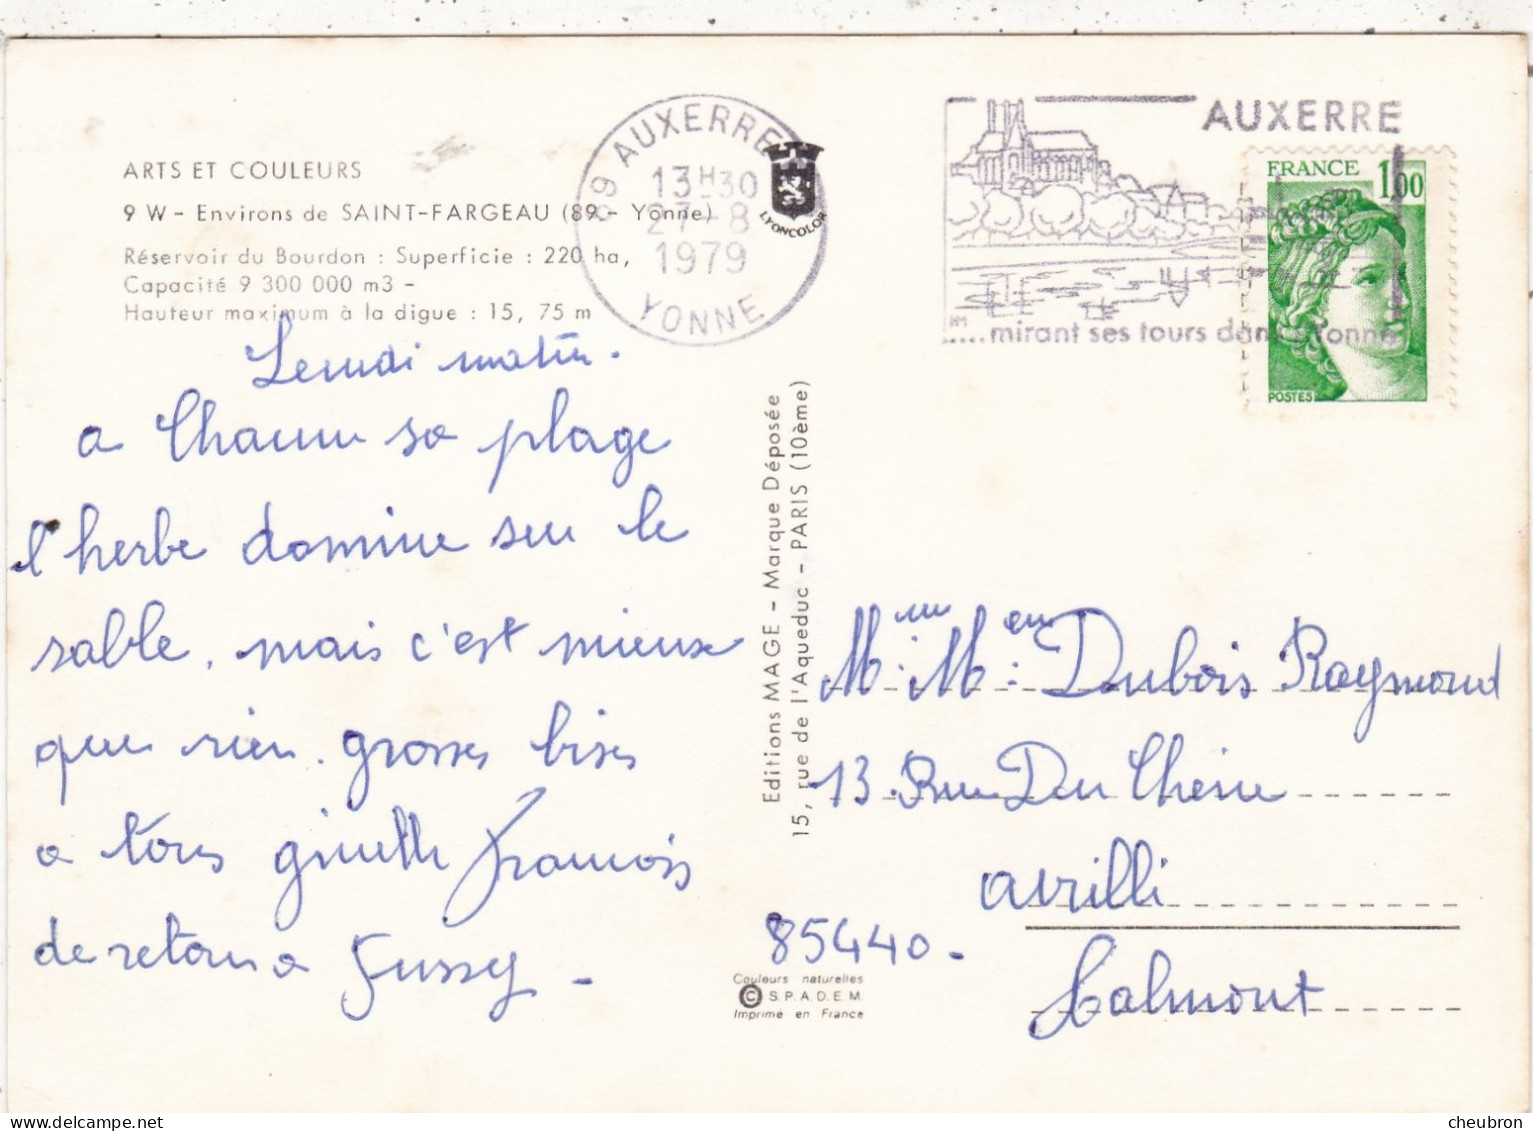 ARTS ET COULEURS
9 W - Environs de SAINT-FARGEAU (89 - Yonne)
Réservoir du Bourdon : Superficie : 220 ha,
Capacité 9 300 000 m3 -
Hauteur maximum à la digue : 15, 75 m
Lundi matin.
a Chacun sa plage
l'herbe domine sur le
sable, mais c'est mieux
que rien. grosses bises
a tous ginette francois
de retour a Jussy -
89 AUXERRE
13H30
27-8
1979
YONNE
LYONCOLOR
AUXERRE
.....mirant ses tours dans l'Yonne
FRANCE 1,00
POSTES
Editions MAGE - Marque Déposée
15, rue de l'Aqueduc - PARIS (10ème)
Couleurs naturelles
© S.P.A.D.E.M.
Imprimé en France
Dubois Raymond
13 Rue Du Chêne
avrilli
85440 -
talmont
cheubron